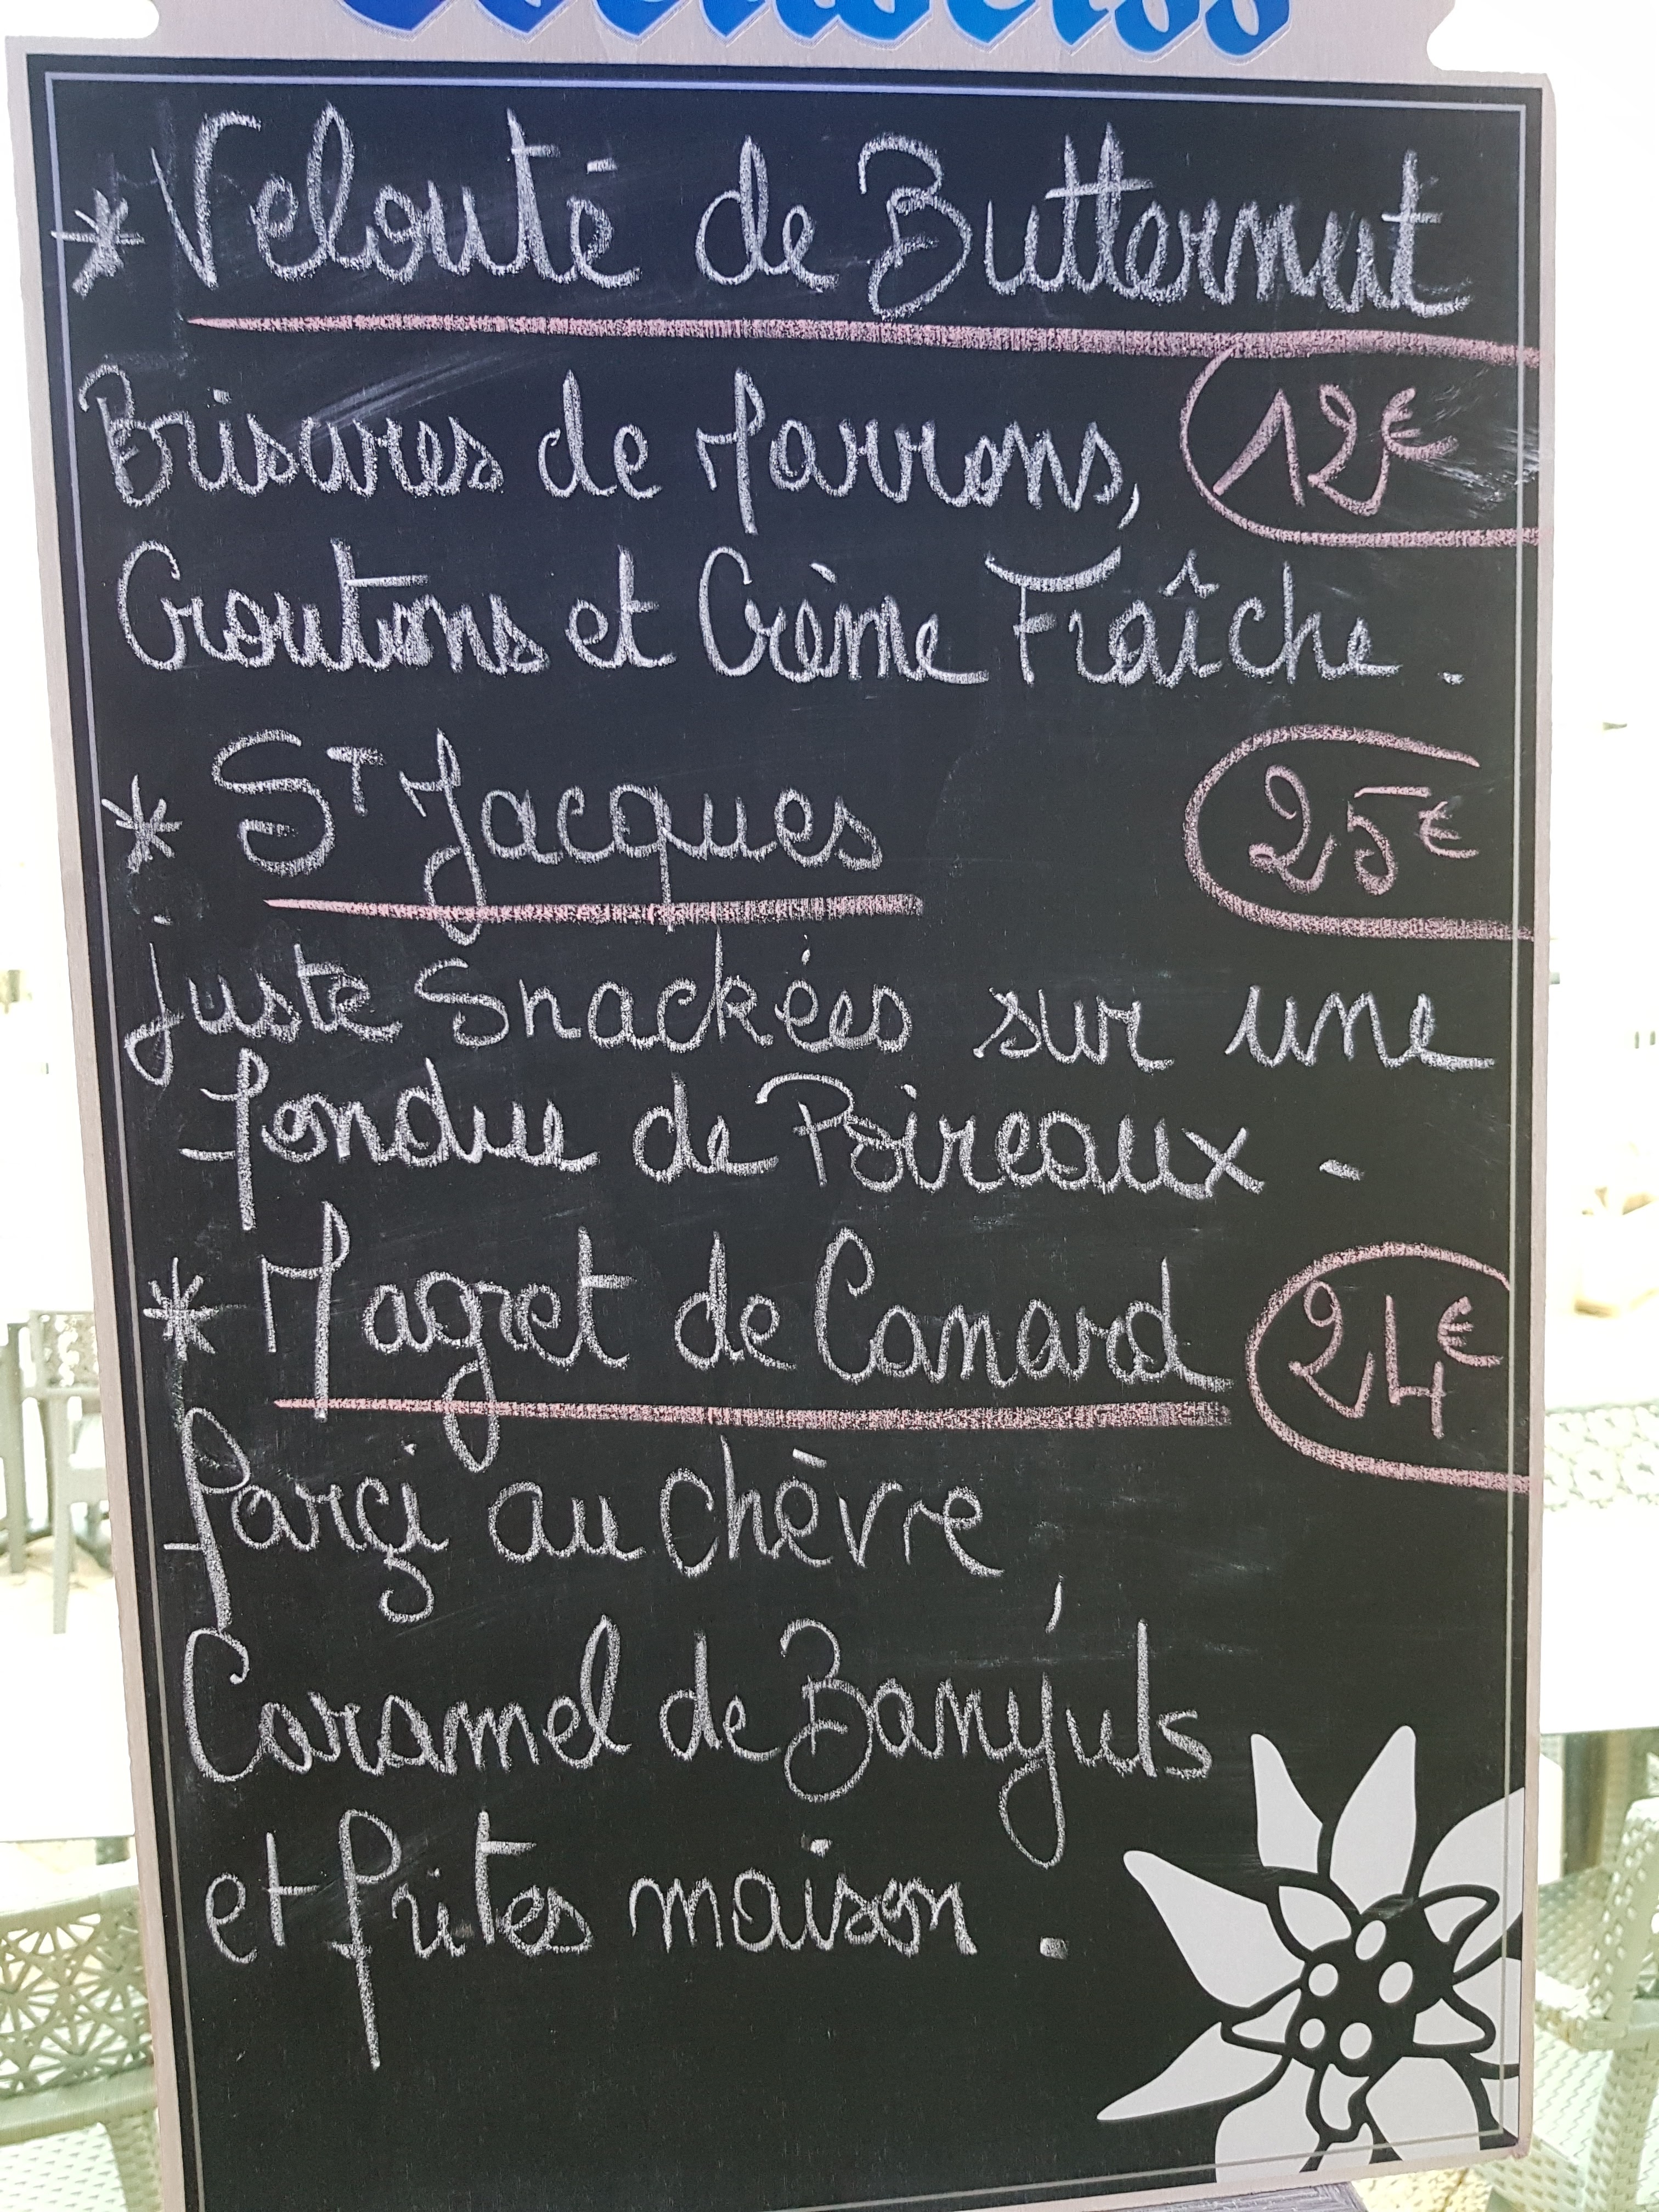 * Velouté de Butternut
Brisures de Marrons, 12€
Croutons et Crème Fraîche.
* ST Jacques 25€
juste Snackées sur une
fondue de Poireaux.
* Magret de Canard 24€
farçi au chèvre,
Caramel de Banyuls
et frites maison.